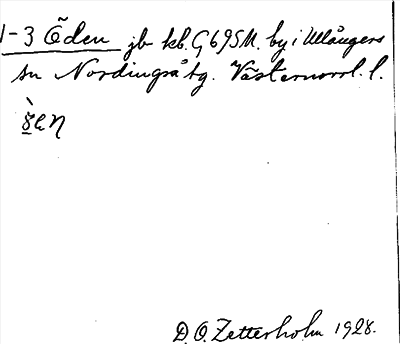 1-3 Öden jb kb. G695M. by i Ullångers
sn Nordingrå tg. Västernorrl. l.
D. O. Zetterholm 1928.